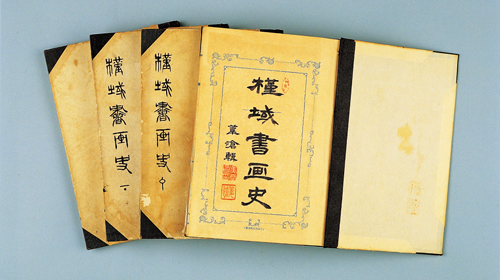 槿域書画史
葦滄輯
槿域書画史 中
槿域書画史 下